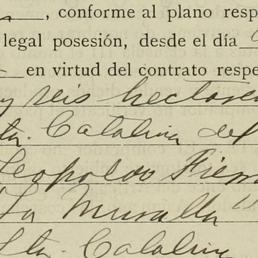 , conforme al plano resp
legal posesión, desde el día
en virtud del contrato respe
y seis hectárea
ta. Catalina del
Leopoldo Fierr
"La Muralla"
Sta. Catalin